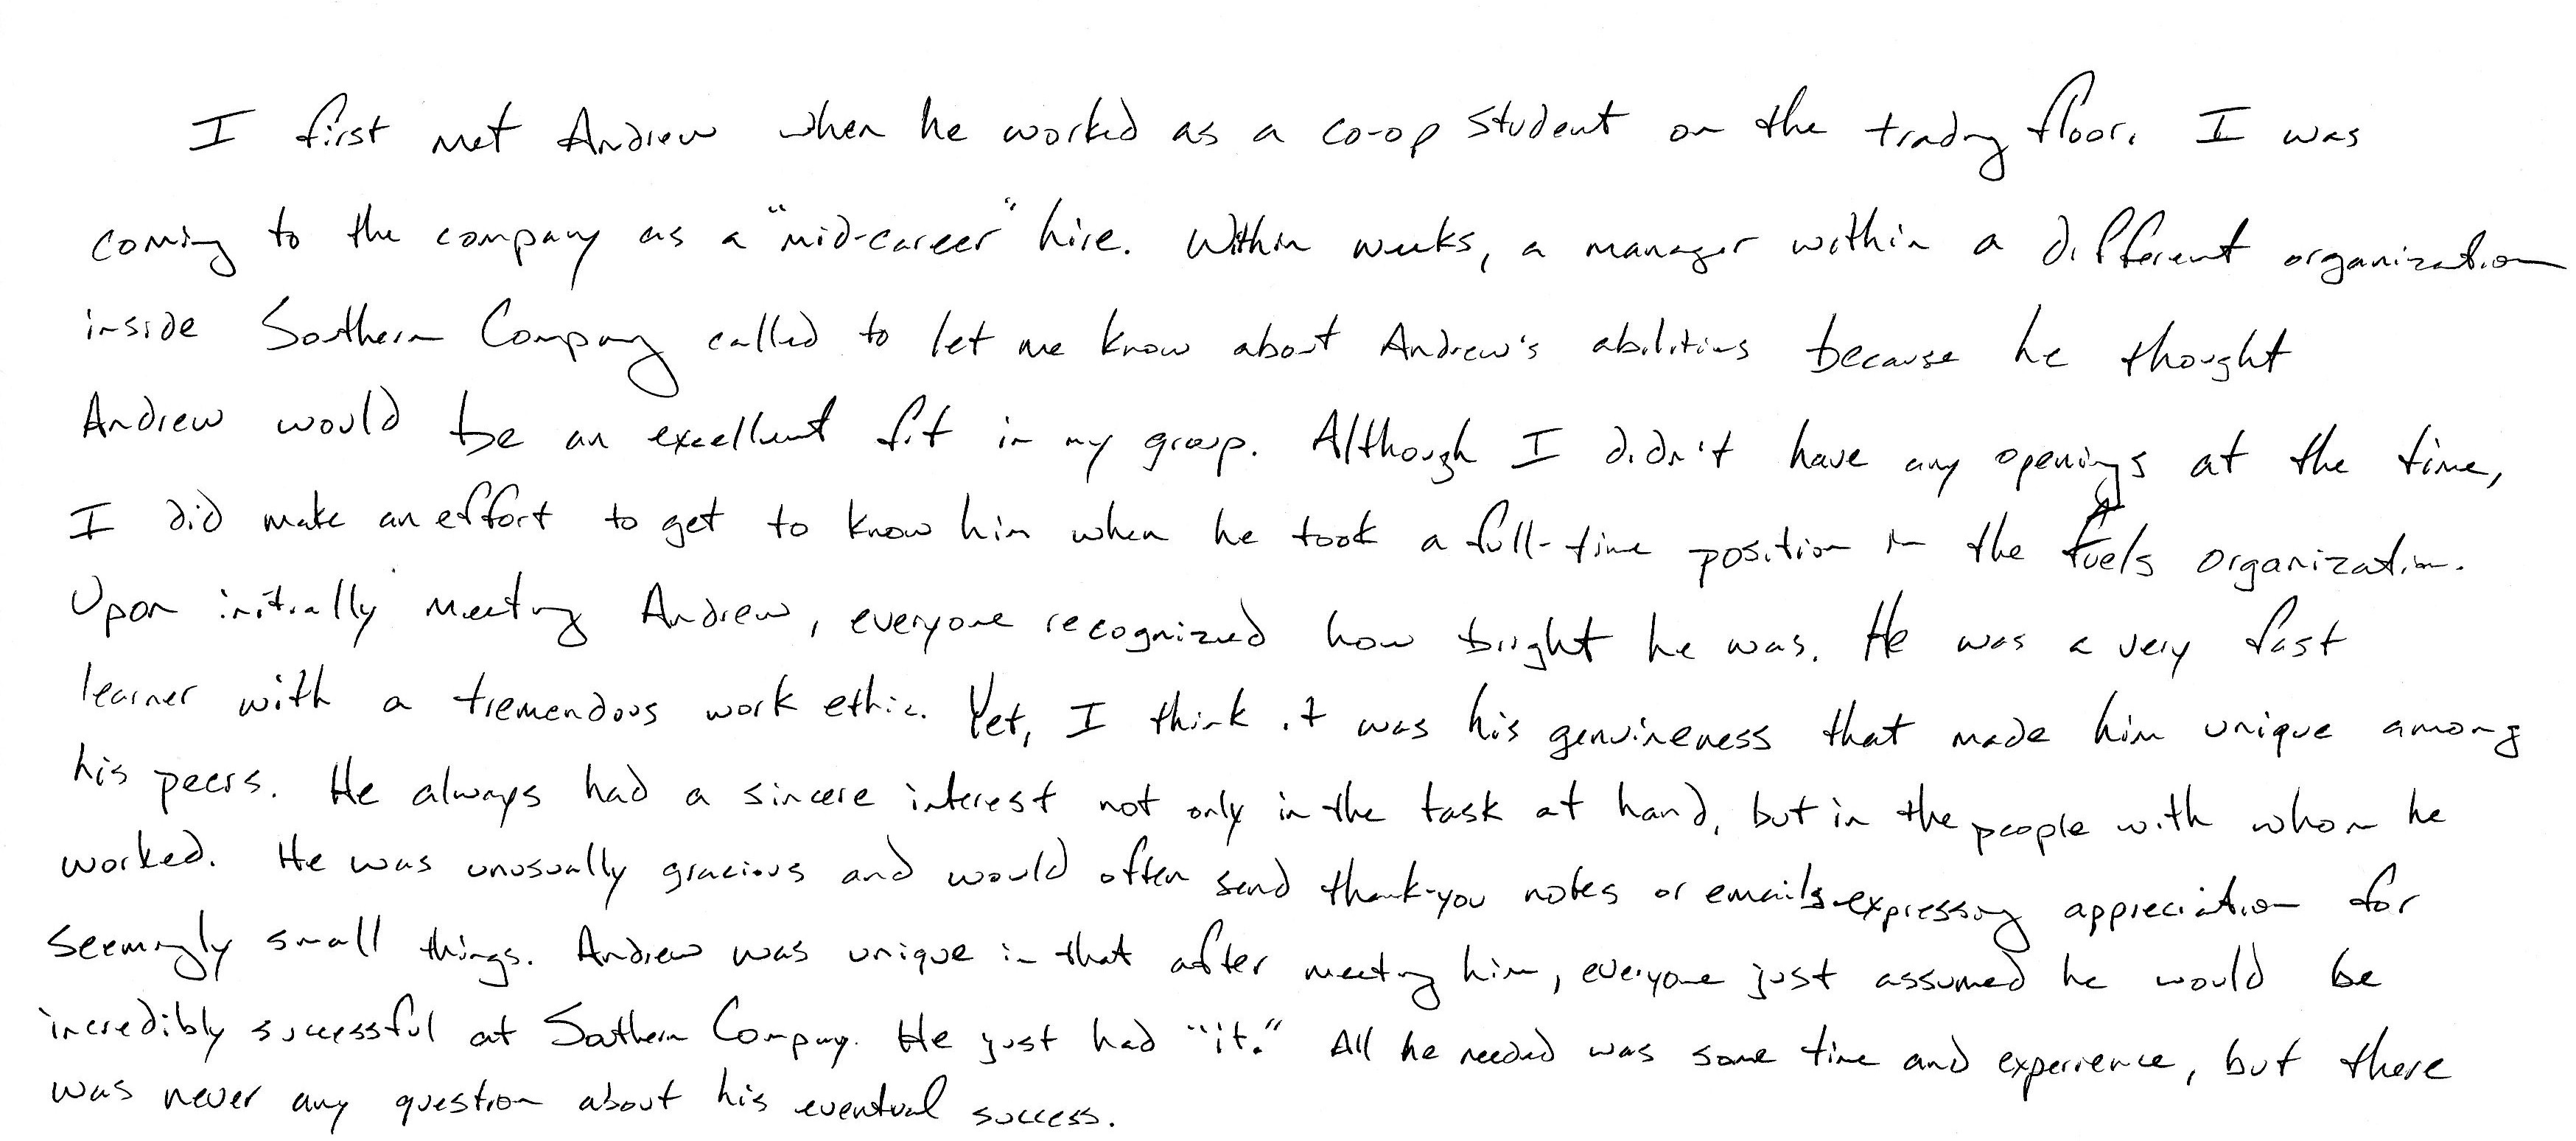 I first met Andrew when he worked as a co-op student on the trading floor. I was
coming to the company as a "mid-career" hire. Within weeks, a manager within a different organization
inside Southern Company called to let me know about Andrew's abilities because he thought
Andrew would be an excellent fit in my group. Although I didn't have any openings at the time,
I did make an effort to get to know him when he took a full-time position in the Fuels organization.
Upon initially meeting Andrew, everyone recognized how bright he was. He was a very fast
learner with a tremendous work ethic. Yet, I think it was his genuineness that made him unique among
his peers. He always had a sincere interest not only in the task at hand, but in the people with whom he
worked. He was unusually gracious and would often send thank-you notes or emails expressing appreciation for
seemingly small things. Andrew was unique in that after meeting him, everyone just assumed he would be
incredibly successful at Southern Company. He just had "it." All he needed was some time and experience, but there
was never any question about his eventual success.